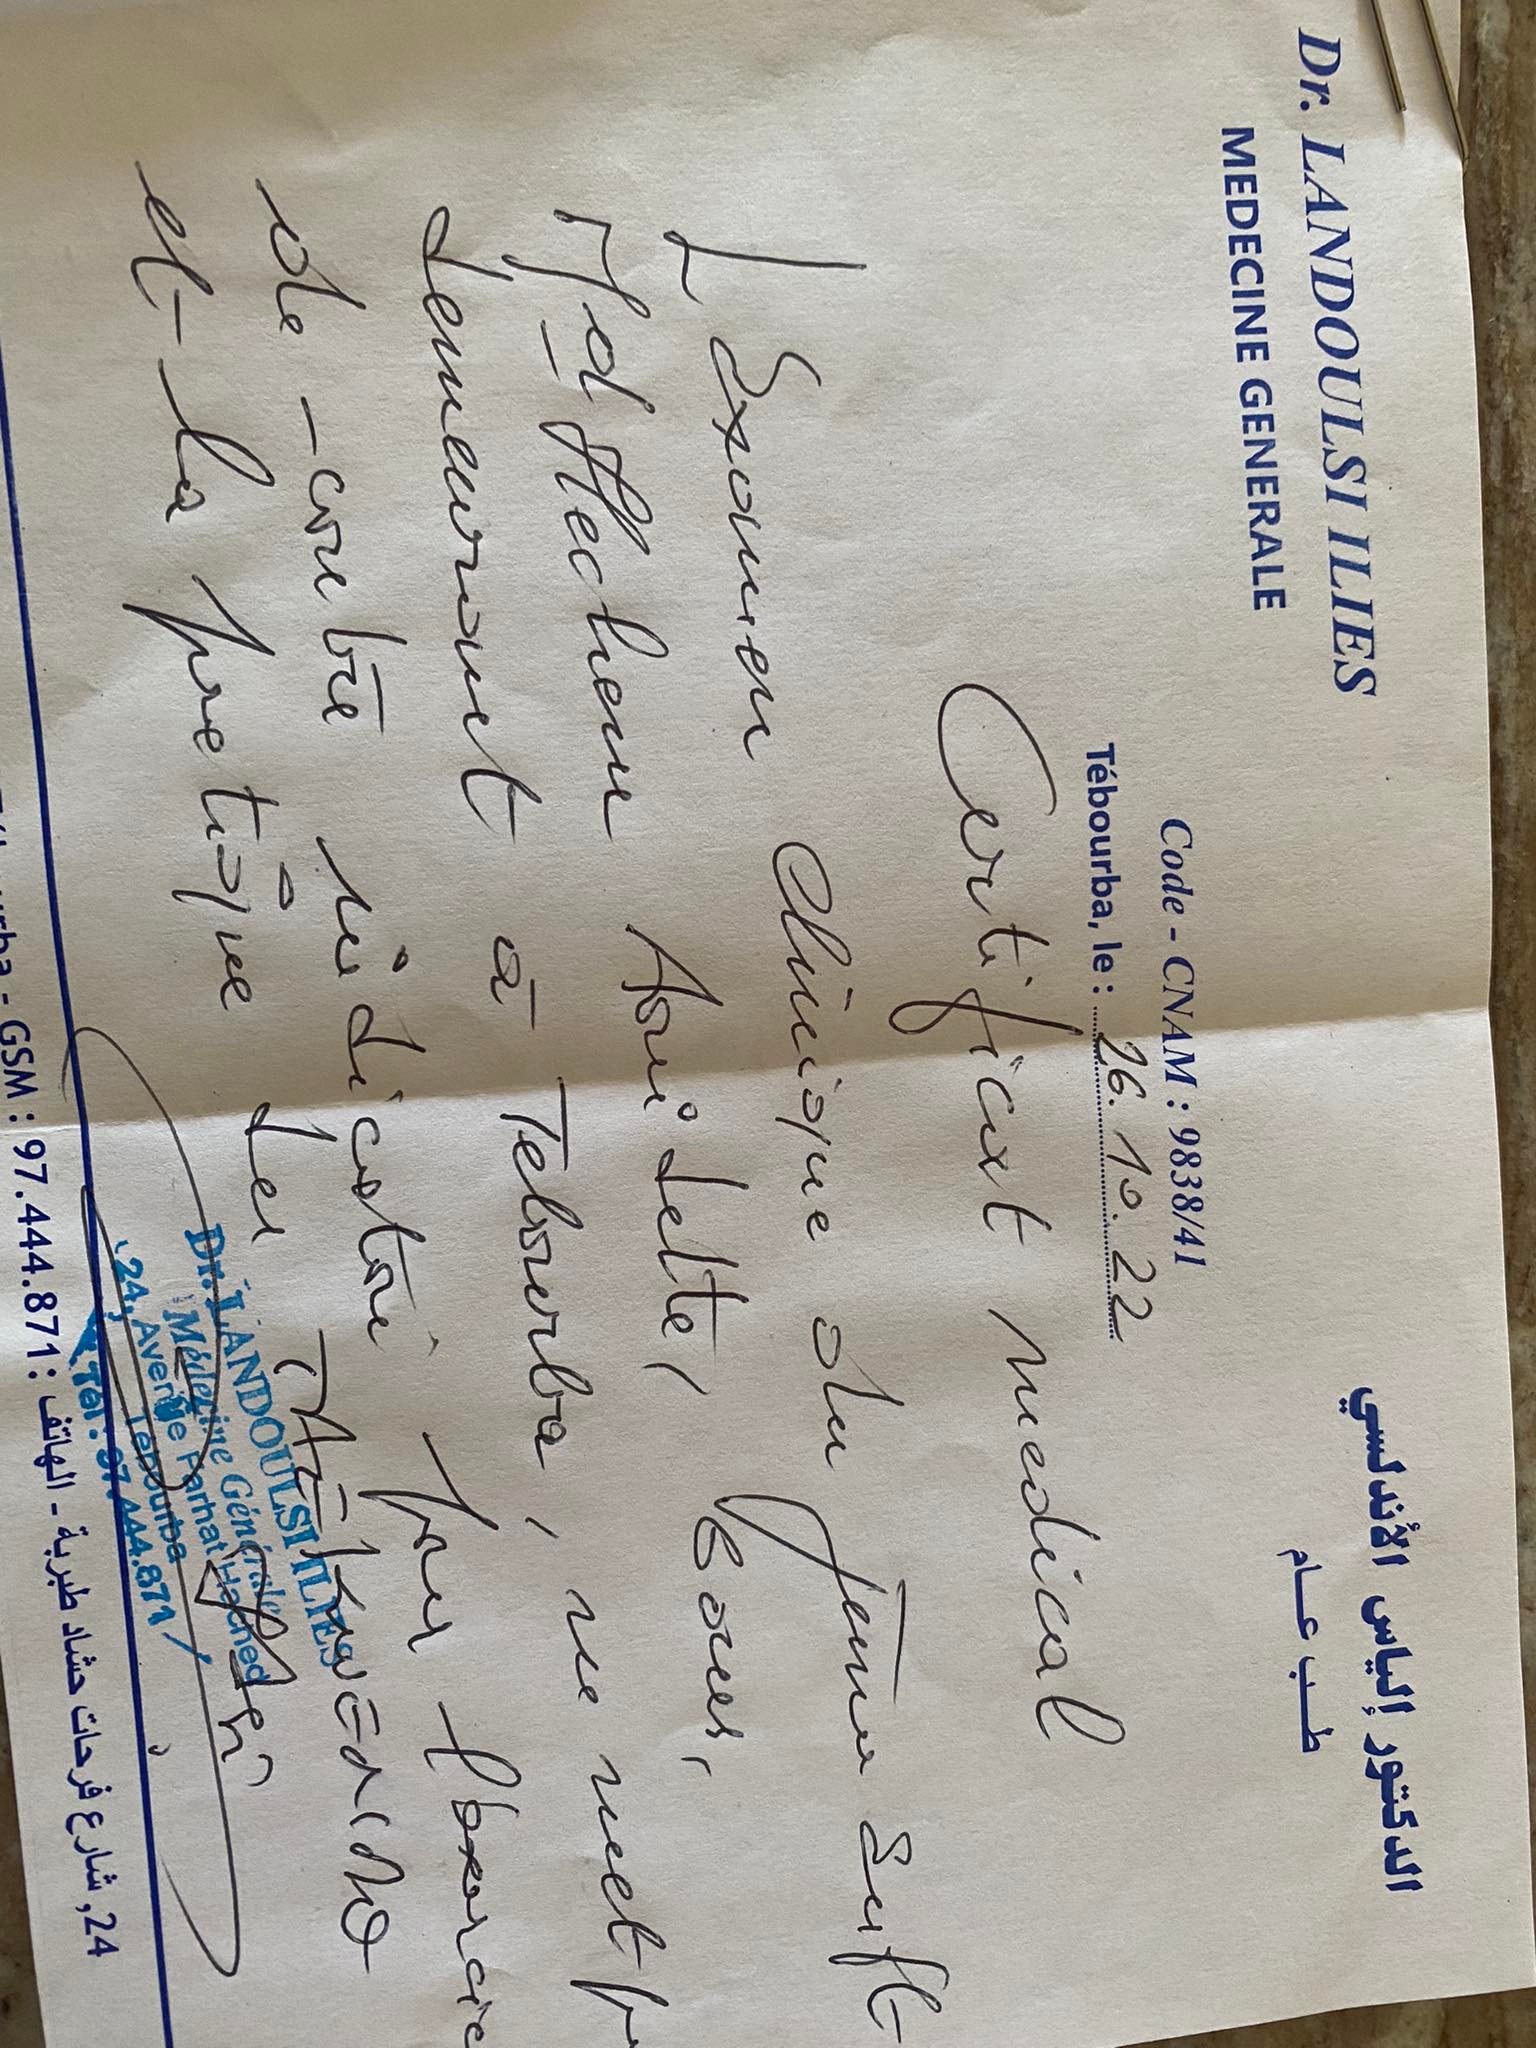 Dr. LANDOULSI ILIES
MEDECINE GENERALE
الدكتور إلياس الأندلسي
طب عام
Code - CNAM : 9838/41
Tébourba, le : 26.10.22
Certificat medical
L'Examen Clinique du Jeune Seif-
demeurant à Tebourba, ne met p
de contre indication pour l'exercice
et la pratique des
Dr. LANDOULSI ILIES
Médecine Générale
24, Avenue Farhat Hached
Tebourba
Tél : 97.444.871
GSM : 97.444.871 : الهاتف - 24, شارع فرحات حشاد طبربة